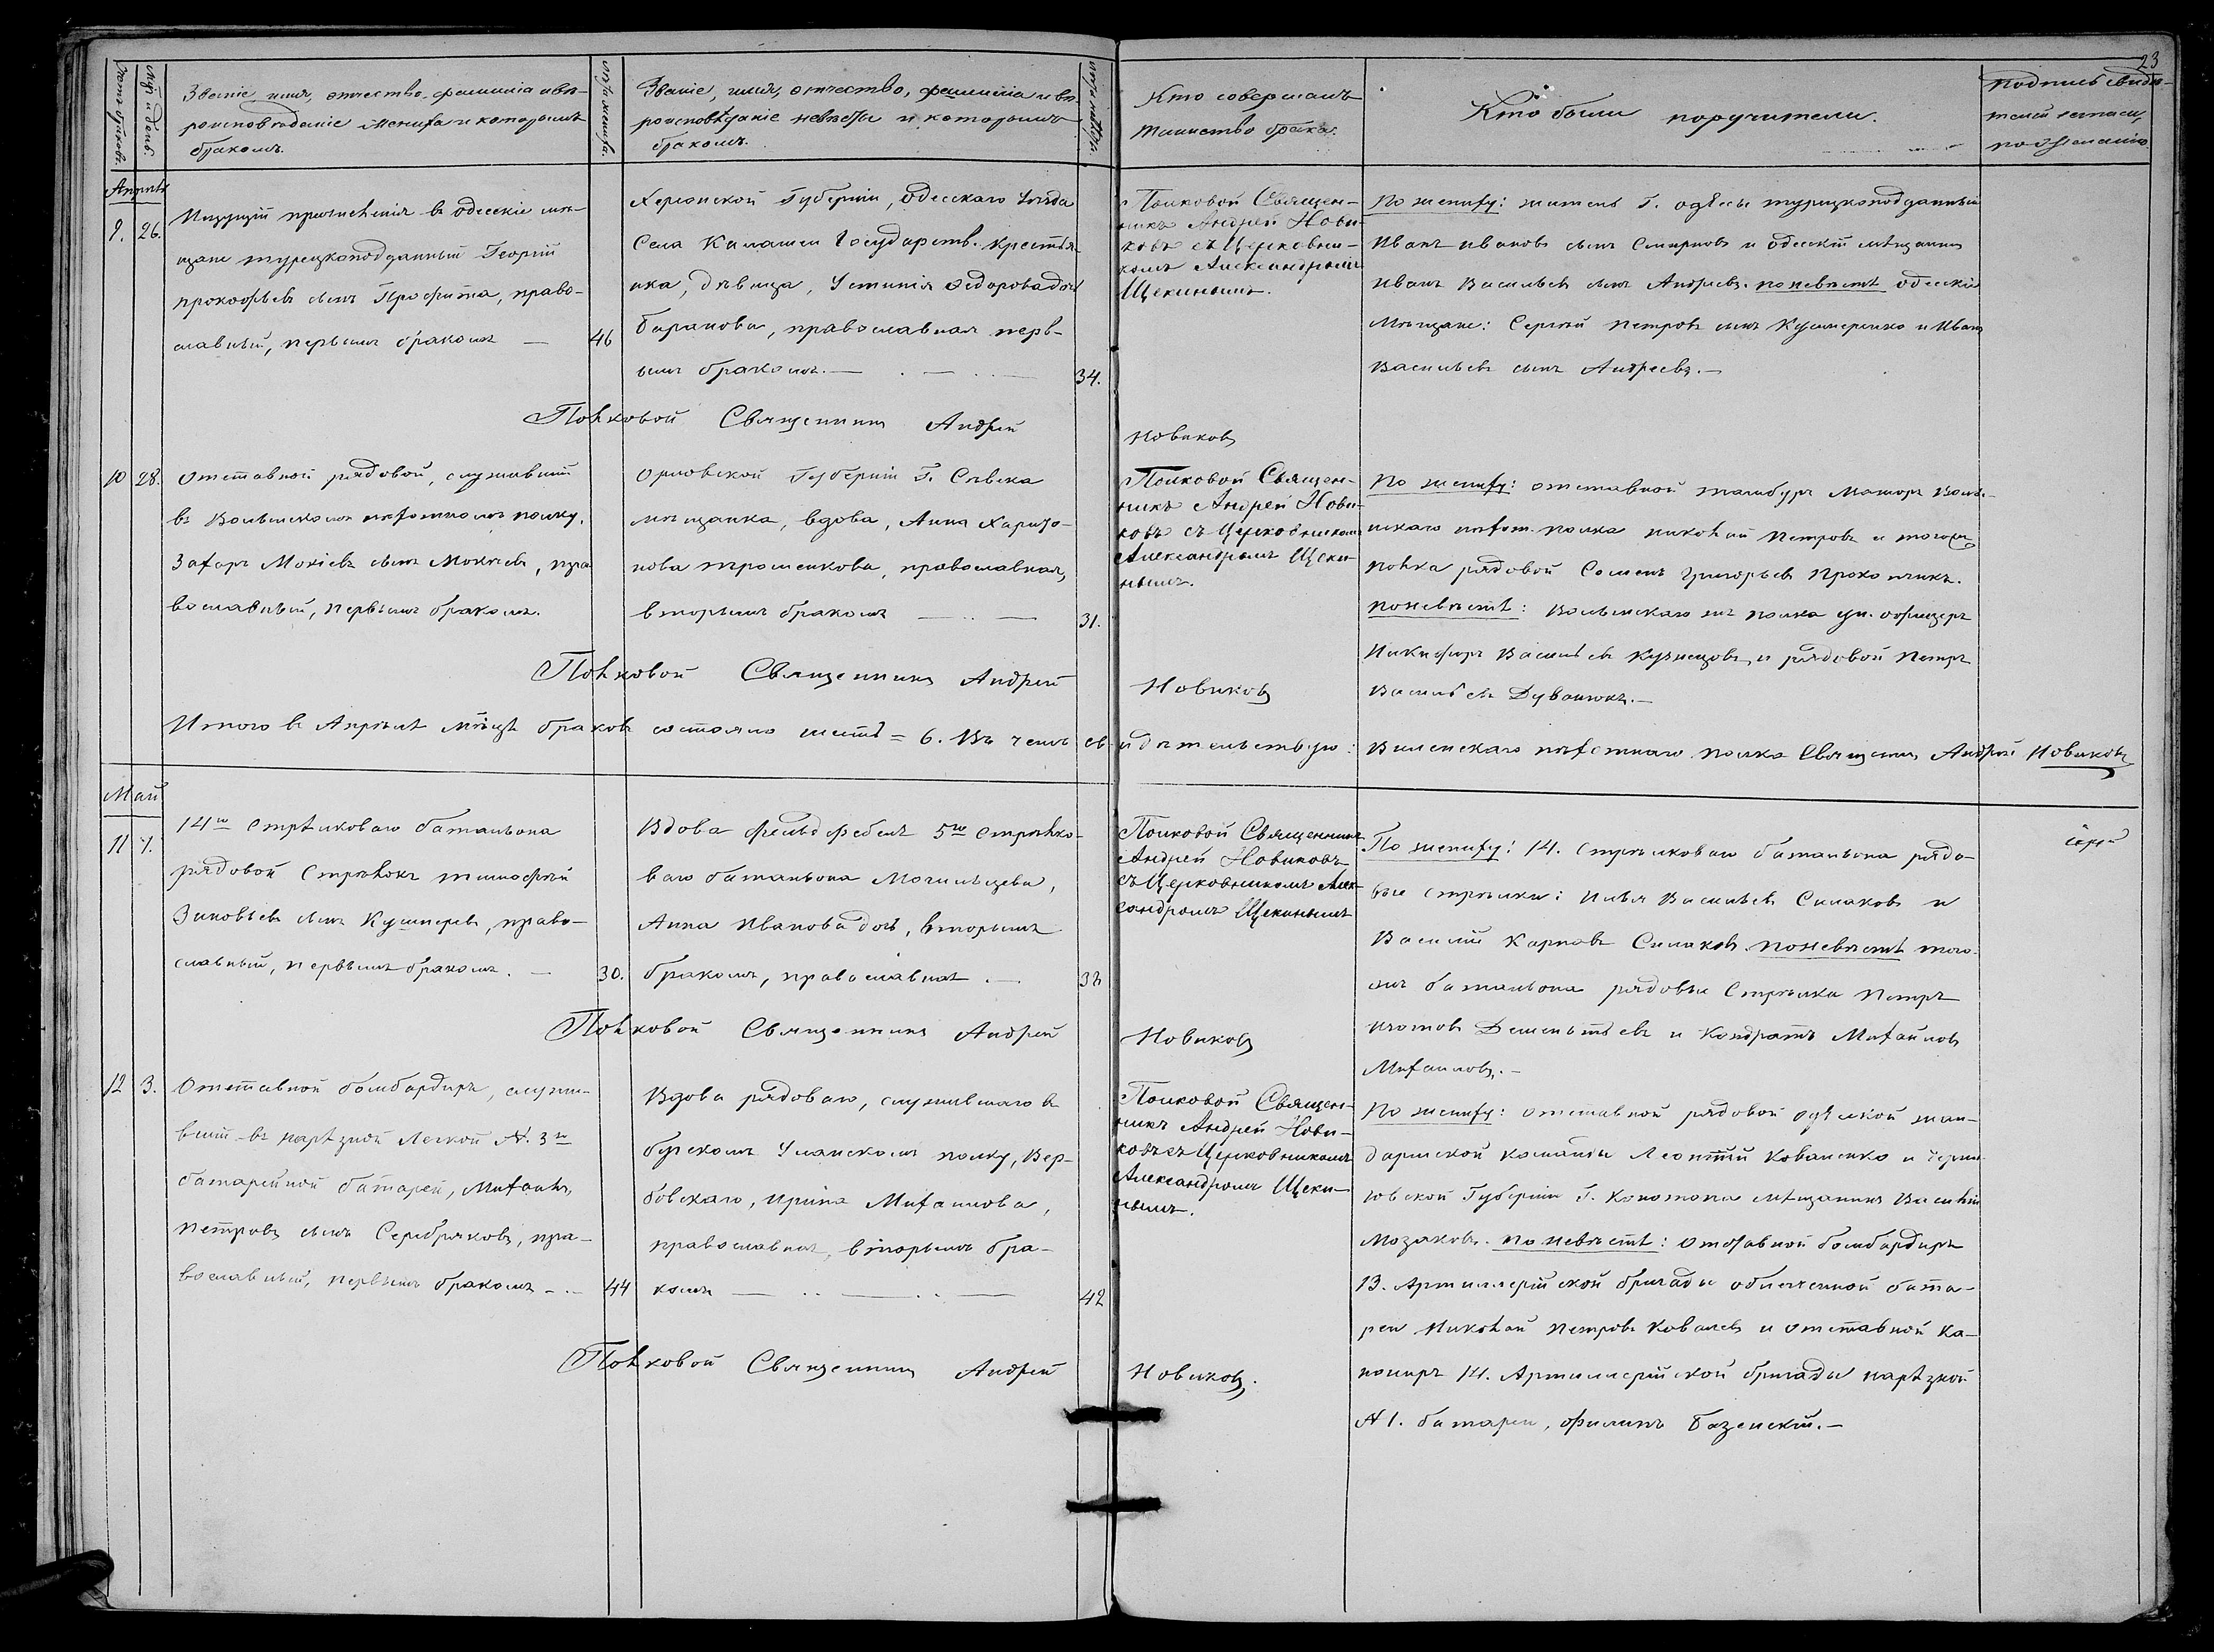 23
Счетъ браковъ.
Мѣс. и день.
Званіе, имя, отчество, фамилія и вѣ-
роисповѣданіе жениха и которымъ
бракомъ.
Лѣта жениха.
Званіе, имя, отчество, фамилія и вѣ-
роисповѣданіе невѣсты и которымъ
бракомъ.
Лѣта невѣсты.
Кто совершалъ
таинство брака.
Кто были поручители.
Подпись свидѣ-
телей записи,
по желанію.
Апрѣль
9. 26.
Ищущій причисленія въ одесскіе мѣ-
щане турецкоподданный Георгій
Прокофьевъ сынъ Профита, право-
славный, первымъ бракомъ —
46
Херсонской Губерніи, Одесскаго Уѣзда
Села Калаглеи Государств. Крестья-
нка, дѣвица, Устинія Ѳедорова дочь
Баранова, православная перв-
ымъ бракомъ. —
34.
Полковой Священ-
никъ Андрей Нови-
ковъ съ Церковни-
комъ Александромъ
Щекинымъ.
По жениху: житель Г. Одессы турецкоподданный
Иванъ Ивановъ сынъ Смирновъ и одесскій мѣщанинъ
Иванъ Васильевъ сынъ Андреевъ. по невѣстѣ одесскіе
Мѣщане: Сергѣй Петровъ сынъ Кушнеренко и Иванъ
Васильевъ сынъ Андреевъ. —
Полковой Священникъ Андрей Новиковъ
10 28.
Отставной рядовой, служившій
въ Волынскомъ пѣхотномъ полку,
Захаръ Мокіевъ сынъ Мокіевъ, пра-
вославный, первымъ бракомъ.
Орловской Губерніи Г. Сѣвска
мѣщанка, вдова, Анна Харито-
нова Трошенкова, православная,
вторымъ бракомъ —
31.
Полковой Священ-
никъ Андрей Нови-
ковъ съ Церковникомъ
Александромъ Щеки-
нымъ.
По жениху: отставной тамбуръ мажоръ Волы-
нскаго пѣхот. полка Николай Петровъ и тогоже
полка рядовой Семенъ Григорьевъ Прокопчикъ.
по невѣстѣ: Волынскаго же полка ун. офицеръ
Никифоръ Васильевъ Кузнецовъ и рядовой Петръ
Васильевъ Дуванюкъ. —
Полковой Священникъ Андрей Новиковъ
Итого въ Апрѣлѣ мѣсяцѣ браковъ состояло шесть = 6. Въ чемъ свидѣтельствую: Виленскаго пѣхотнаго полка Священникъ Андрей Новиковъ
Май
11 1.
14го Стрѣлковаго баталіона
рядовой Стрѣлокъ Тимофѣй
Зиновьевъ сынъ Кушперевъ, право-
славный, первымъ бракомъ. —
30.
Вдова фельдфебеля 5го Стрѣлко-
ваго баталіона Могильцева,
Анна Иванова дочь, вторымъ
бракомъ, православная. —
38
Полковой Священникъ
Андрей Новиковъ
съ Церковникомъ Алек-
сандромъ Щекинымъ
По жениху: 14. Стрѣлковаго баталіона рядо-
вые стрѣлки: Илья Васильевъ Силаковъ и
Василій Карповъ Силаковъ. по невѣстѣ того-
же баталіона рядовые Стрѣлки Петръ
Изотовъ Дементьевъ и Кондратъ Михайловъ
Михаиловъ. —
Полковой Священникъ Андрей Новиковъ
12 3.
Отставной бомбардиръ, служи-
вшій въ нарѣзной Легкой N. 3й
батарейной батареи, Михаилъ
Петровъ сынъ Серебряковъ, пра-
вославный, первымъ бракомъ —
44
Вдова рядоваго, служившаго въ
бугскомъ Уланскомъ полку, Вер-
бовскаго, Ирина Михаилова,
православная, вторымъ бра-
комъ —
42
Полковой Священ-
никъ Андрей Нови-
ковъ съ Церковникомъ
Александромъ Щеки-
нымъ.
По жениху: отставной рядовой Одесской жан-
дармской команды Леонтій Коваленко и Черни-
говской Губерніи Г. Конотопа мѣщанинъ Василій
Мозаковъ. по невѣстѣ: Отставной бомбардиръ
13. Артиллерійской бригады облегченной бата-
реи Николай Петровъ Ковалевъ и отставной Ка-
нониръ 14. Артиллерійской бригады нарѣзной
N 1. батареи, Филипъ Базенскій. —
Полковой Священникъ Андрей Новиковъ.